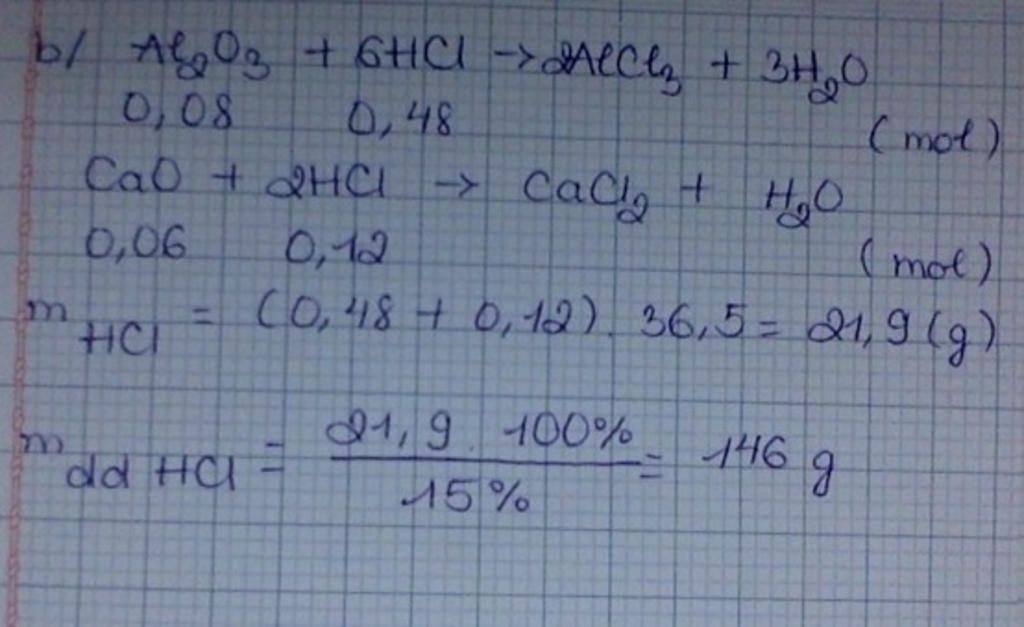 b/ Al₂O₃ + 6HCl → 2AlCl₃ + 3H₂O
0,08 0,48 (mol)
CaO + 2HCl → CaCl₂ + H₂O
0,06 0,12 (mol)
m HCl = (0,48 + 0,12) . 36,5 = 21,9 (g)
m dd HCl = 21,9 . 100% / 15% = 146 g